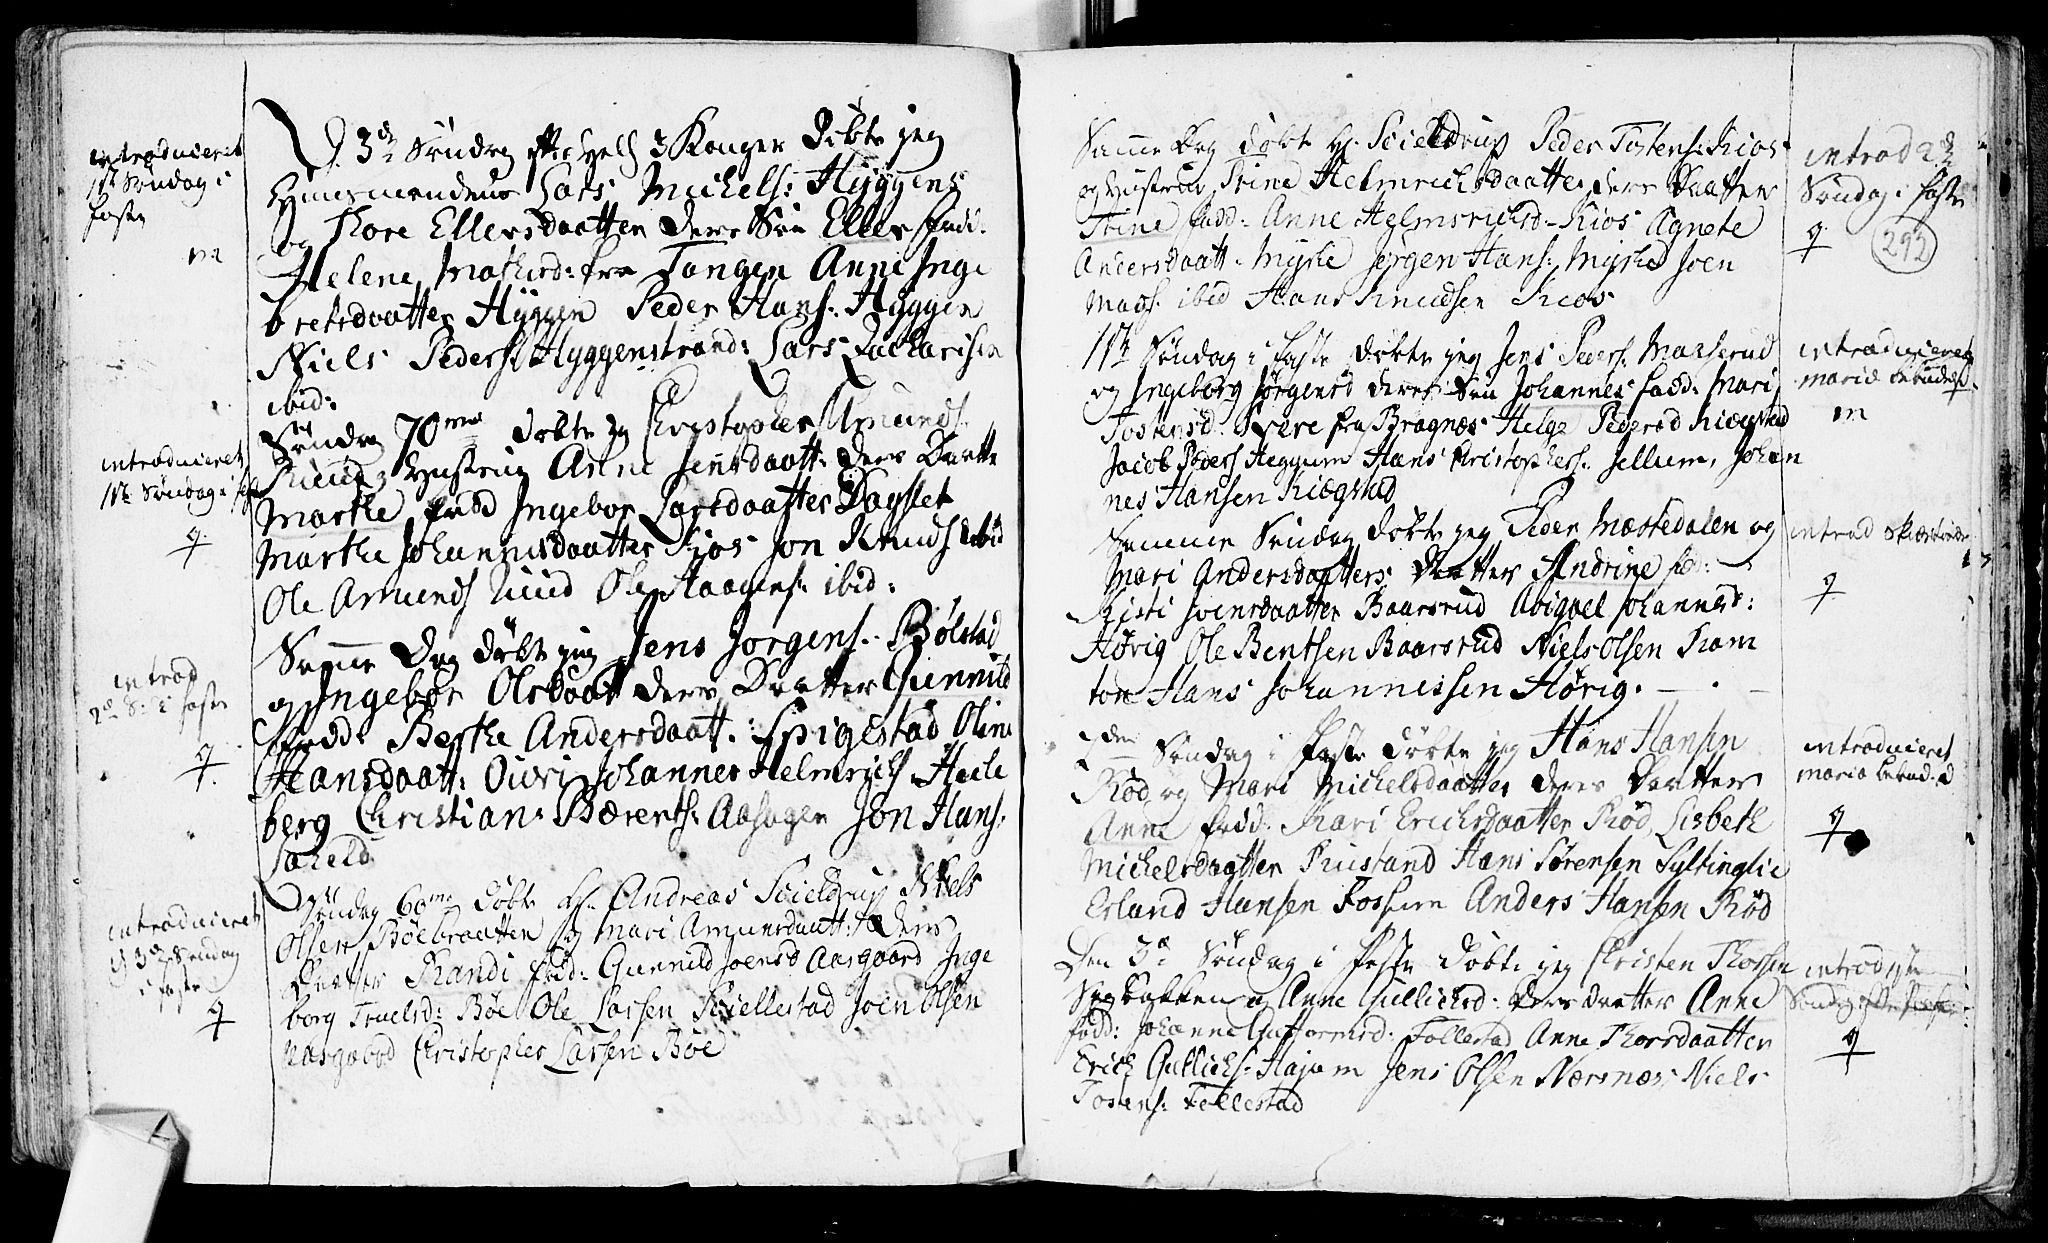 introduceret
1ste Søndag i
faste
m
D. 3de Søndag efter Hell 3 Konger døbte jeg
Huusmandens Lars Michels: Hyggens
og Thore Ellersdaatter deres Søn Eller fadd:
Helene Mathisd: fra Tangen Anne Inge
bretsdaatter Hyggen Peder Hans: Hyggen
Niels Peders: Hyggenstrand: Lars Zacharisen
ibid:
introduceret
1ste Søndag i faste
q
Søndag 70ma døbte jeg Christopher Amunds:
Ruud og Hustrue Anne Jensdaatt: deres Daatter
Marthe fadd Ingebor Larsdaatter Dagslet
Marthe Johannisdaatter Kjos Jon Knuds: ibid
Ole Amunds: Ruud Ole Haagens: ibid:
introd
2den S: i faste
q
Samme Dag døbte jeg Jens Jørgens: Bølstad
og Ingebor Olsdaat deres Daatter Gunnild
fadd: Berthe Andersdaatt: Spigestad Oline
Hansdaatt: Ouvri Johannes Helmrichs: Heile
berg Christian: Bærents: Aasagen Jon Hans:
Saheld
introduceret
d 3de Søndag
i faste
q
Søndag 60ma døbte Hr. Andreas Scieldrup Niels
Olsen Bøebraatten og Mari Amundsdaatt: deres
Daatter Randi fadd: Gunnild Joensd Aasgaard Inge
borg Truelsd: Bøe Ole Larsen Sciellestad Joen Olsen
Christopher Larsen Bøe
Samme Dag døbte Hr. Scieldrup Peder Tostens: Kios
og Hustrue Trine Helmrichsdaatter deres Daatter
Trine fadd: Anne Helmsrichsd: Kios Agnete
Andersdaatt: Myhre Jørgen Hans: Myhre Joen
Mads: ibid Hans Knudsen Kios
introd 2de
Søndag i faste
q
292
1ste Søndag i faste døbte jeg Jens Peders: Masserud
og Ingeborg Jørgensd deres Søn Johannes fadd: Mari
Tostensd: Svere fra Bragnæs Helge Pedersd Kiægstad
Jacob Peders: Heggum Hans Christophers: Jellum, Johan
nes Hansen Kiægstad
introduceret
mariæ bebudelse
m
Samme Søndag døbte jeg Peder Næstedalen og
Mari Andersdaatters Daatter Andrine fad:
Kisti Joensdaatter Baarsrud Abigael Johannsd:
Hørig Ole Bentsen Baarsrud Niels Olsen Ram
ton Hans Johannessen Hørig. — . —
introd Skiærtorsd
q
2den Søndag i faste døbte jeg Hans Hansen
Rød og Mari Michelsdaatter deres Daatter
Anne fadd: Kari Erichsdaatter Rød, Lisbeth
Michelsdaatter Ruistand Hans Sørensen Syltinglie
Erland Hansen Fossum Anders Hansen Rød
introduceret
maria bebud:d
q
Den 3de Søndag i faste døbte jeg Christen Thorsen
og Anne Gullichsd: deres daatter Anne
fadd: Johanne Guttormsd: Follestad Anne Thorsdaatter
Erich Gullichs: Hajum Jens Olsen Nærsnæs, Niels
Tosens: Follestad
introd 1ste
Søndag efter Paaske
q